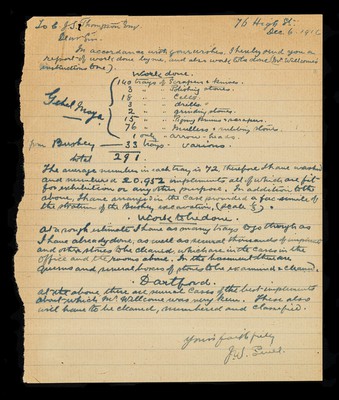 To C. J. S. Thompson Esq. 76 High St.
Dec. 6. 19
Dear Sir.
In accordance with your wishes, I hereby send you a
report of work done by me, and also work to be done (Mr Wellcome's
instructions one).
Work done.
140 trays of Scrapers & knives.
3 " Polishing stones.
18 " Celts.
3 " drills
2 " grinding stones.
15 " & scrapers.
76 " Mullers & rubbing stones
1 only arrow-heads.
Gebel Moya
from Bushey 33 trays. various.
total 291.
The average number in each tray is 72 therefore I have washed
and numbered 20,952 implements all of which are fit
for exhibition or any other purpose. In addition to the
above, I have arranged in the case provided a facsimile of
the stratum of the Bushey excavation, (scale).
Work to be done.
At a rough estimate I have as many trays to go through as
I have already done, as well as several thousands of implements
and ostrea stones to be cleaned, which are in the cases in the
office and the rooms above. In the basement there are
querns and several boxes of stone to be examined & cleaned.
Dartford.
At the above there are several cases of the best implements
about which Mr Wellcome was very keen. These also
will have to be cleaned, numbered and classified.
Yours faithfully
J. W.